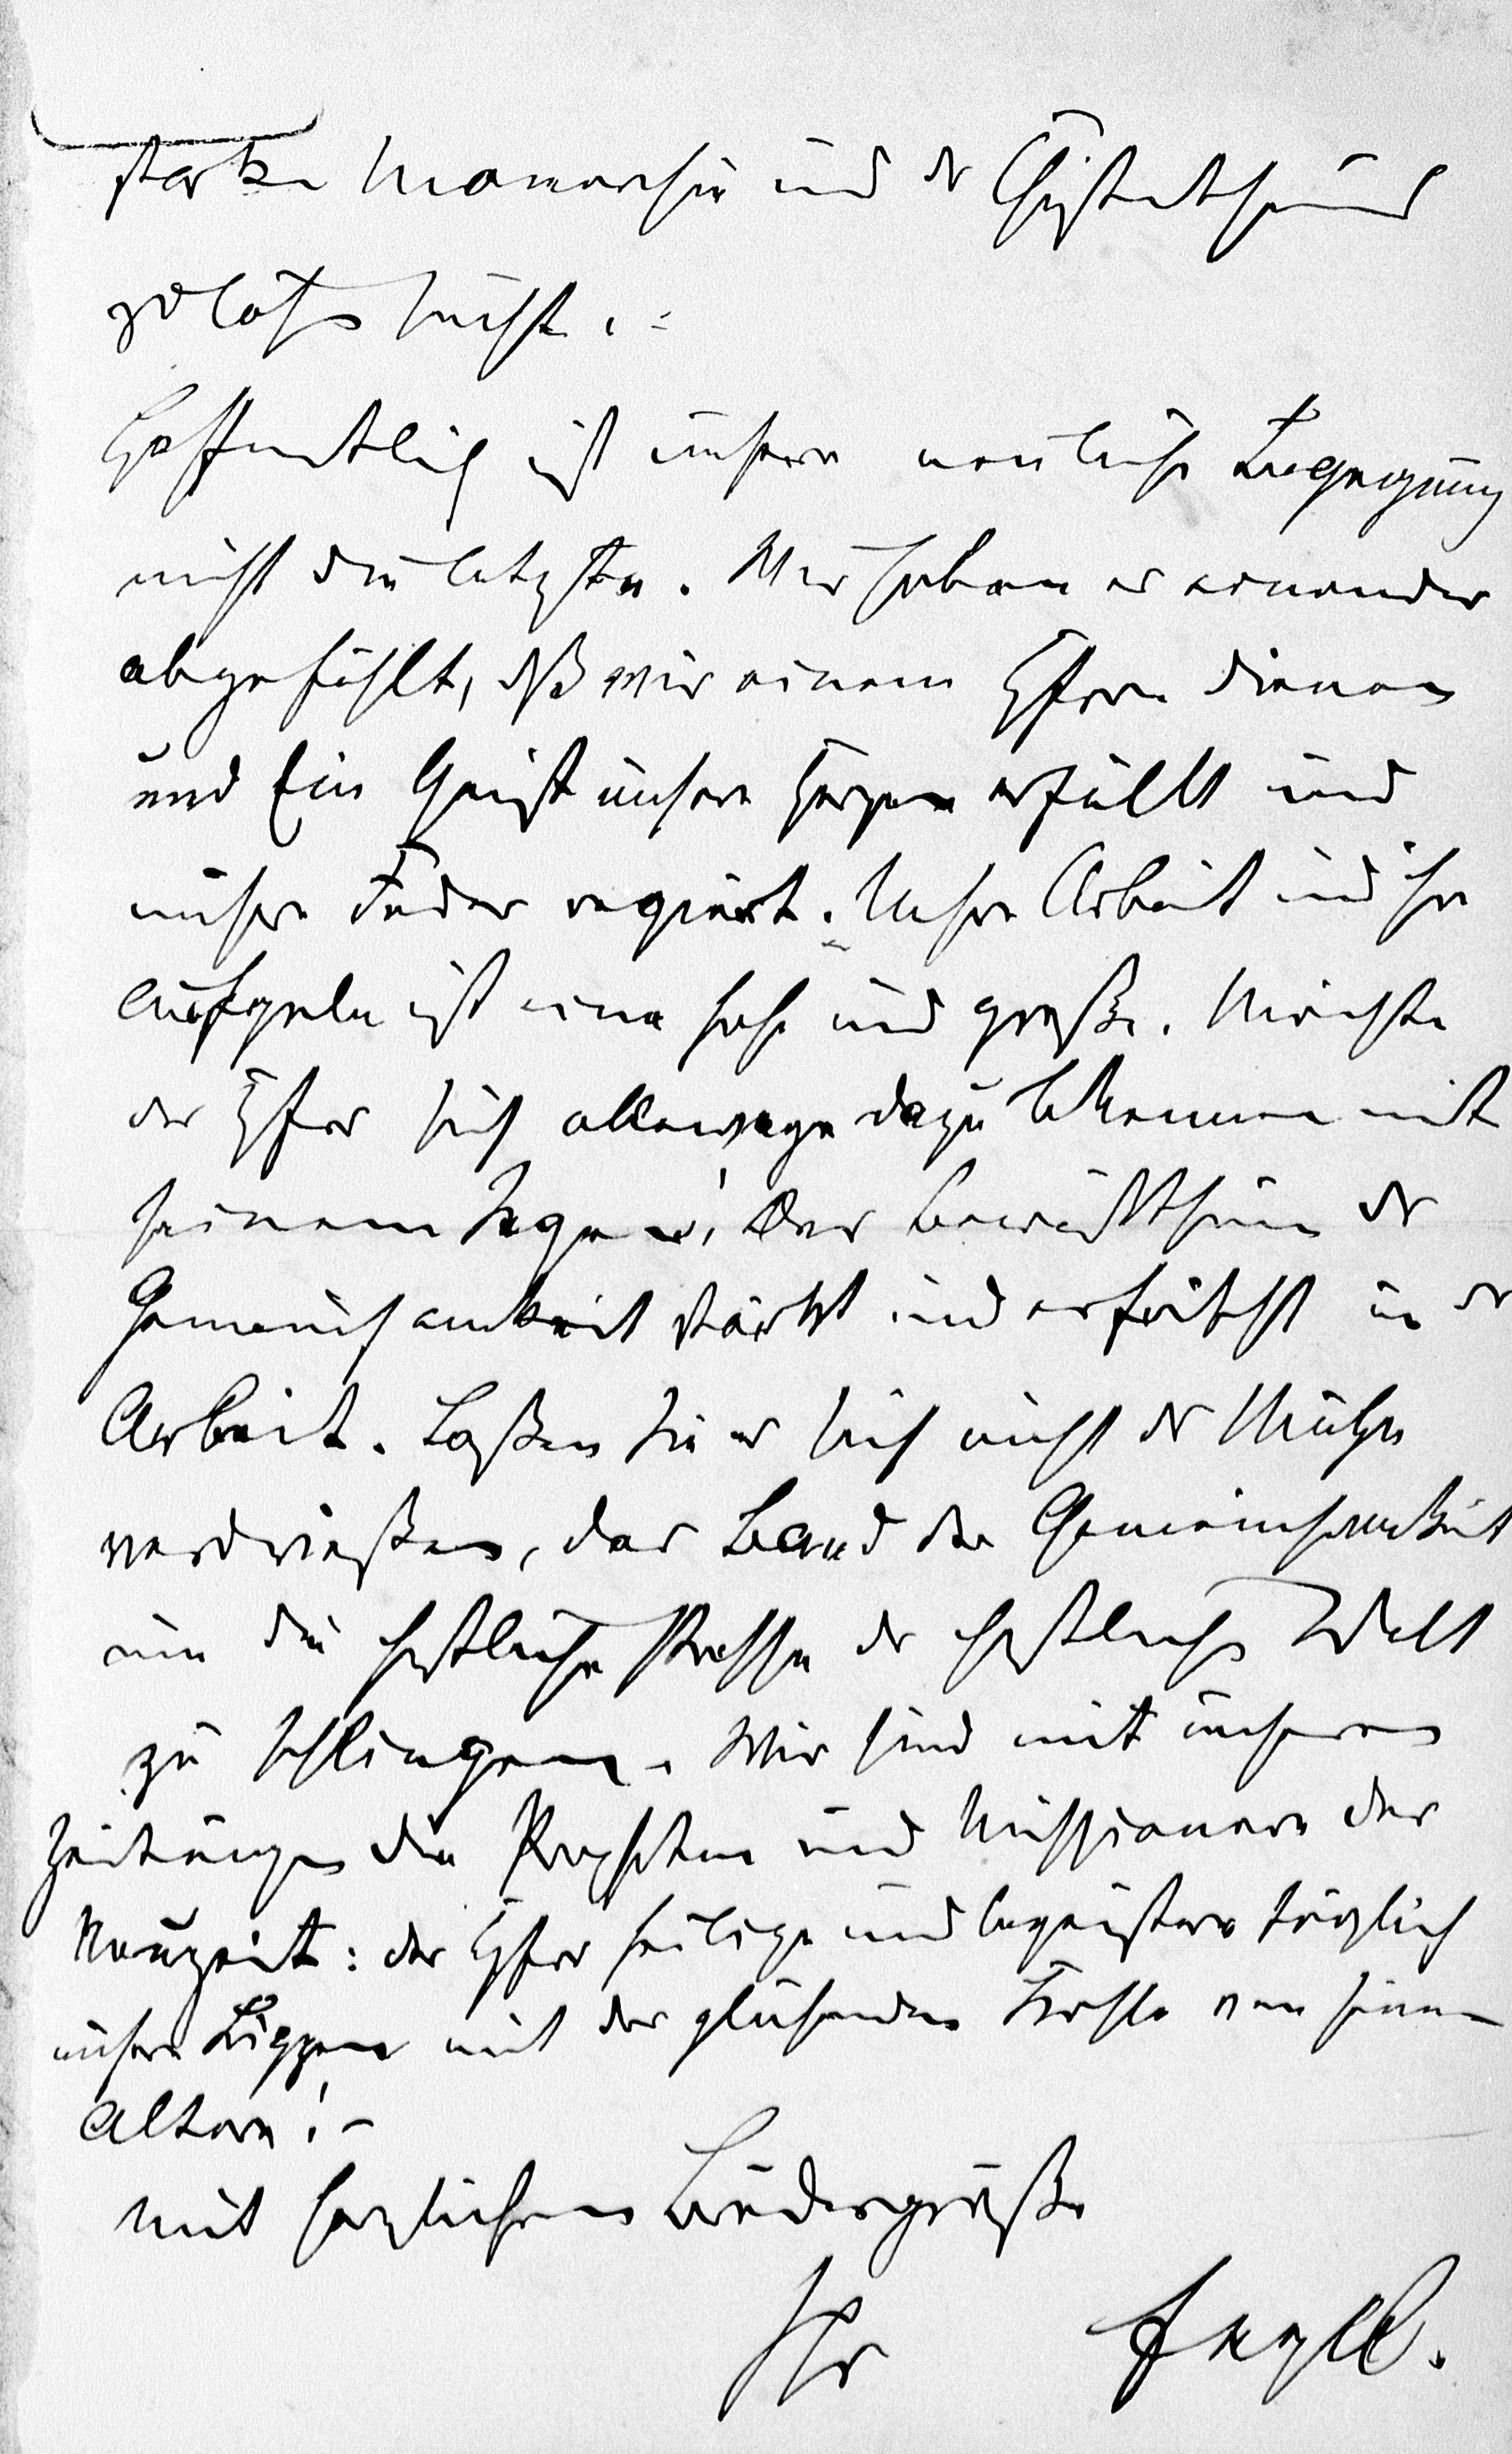 starke Monarchie und dr Christenthum
zu
Hoffentlich ist unsere neuliche Begegnung
nicht die letzte. Wir haben es einander
abgefühlt, dß wir einem Herrn dienen
und Ein Geist unsere Herzen erfüllt und
unsere Feder regiert. Unsre Arbeit und ihre
Aufgabe ist eine hohe und große. Möchte
der Herr sich allewege dazu bekennen mit
seinem Segen! Das Bewußtsein dr
Gemeinsamkeit stärkt und erfrischt in dr
Arbeit. Laßen Sie es sich nicht dr Mühe
verdrießen, das Band der Gemeinsamkeit
um die christliche Presse der christlichen Welt
zu schlingen. Wir sind mit unseren
Zeitungen die Propheten und Missionare der
Neuzeit: der Herr heilige und begeistere täglich
unsere Lippen mit der glühenden Kohle von seinem
Altare! –
Mit herzlichem Brudergruße
Ihr Engel.